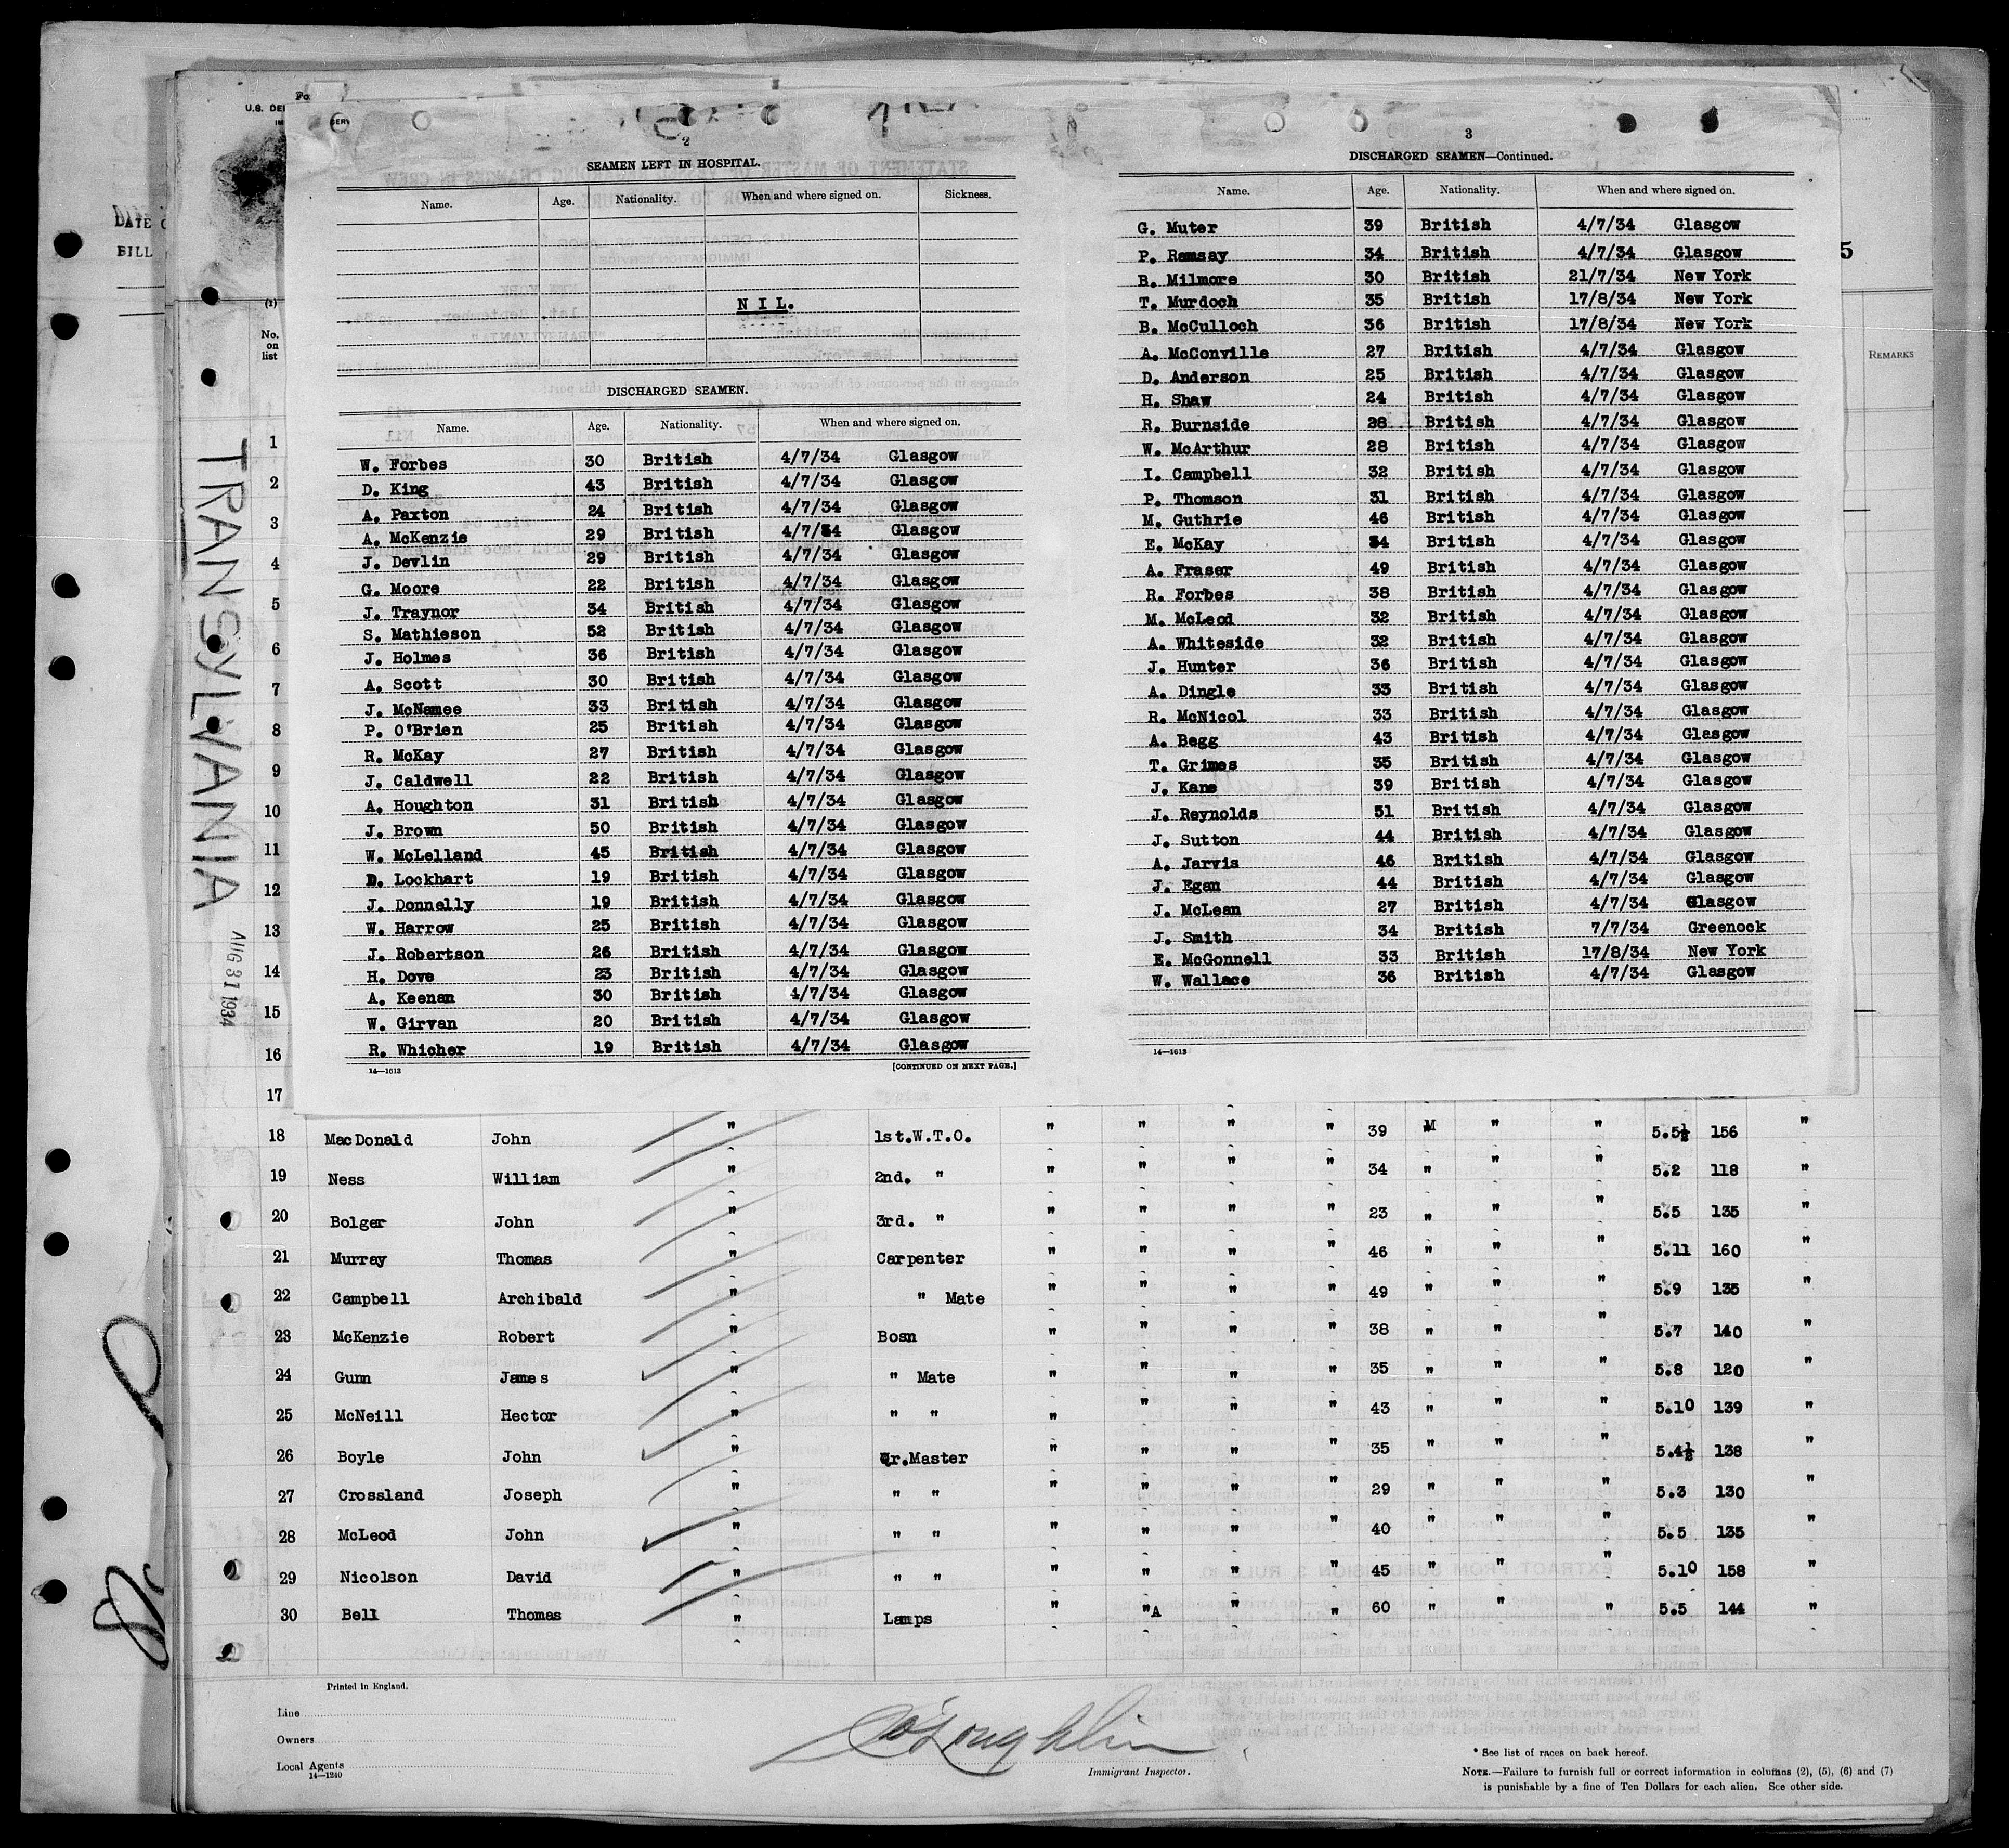 U.S. DE
DATE
BILL
No.
on
list
TRANSYLVANIA
AUG 31 1934
5
REMARKS
2
SEAMEN LEFT IN HOSPITAL.
Name. Age. Nationality. When and where signed on. Sickness.
NIL.
DISCHARGED SEAMEN.
Name. Age. Nationality. When and where signed on.
W. Forbes 30 British 4/7/34 Glasgow
D. King 43 British 4/7/34 Glasgow
A. Paxton 24 British 4/7/34 Glasgow
A. McKenzie 29 British 4/7/34 Glasgow
J. Devlin 29 British 4/7/34 Glasgow
G. Moore 22 British 4/7/34 Glasgow
J. Traynor 34 British 4/7/34 Glasgow
S. Mathieson 52 British 4/7/34 Glasgow
J. Holmes 36 British 4/7/34 Glasgow
A. Scott 30 British 4/7/34 Glasgow
J. McNamee 33 British 4/7/34 Glasgow
P. O'Brien 25 British 4/7/34 Glasgow
R. McKay 27 British 4/7/34 Glasgow
J. Caldwell 22 British 4/7/34 Glasgow
A. Houghton 31 British 4/7/34 Glasgow
J. Brown 50 British 4/7/34 Glasgow
W. McLelland 45 British 4/7/34 Glasgow
D. Lockhart 19 British 4/7/34 Glasgow
J. Donnelly 19 British 4/7/34 Glasgow
W. Harrow 25 British 4/7/34 Glasgow
J. Robertson 26 British 4/7/34 Glasgow
H. Dove 23 British 4/7/34 Glasgow
A. Keenan 30 British 4/7/34 Glasgow
W. Girvan 20 British 4/7/34 Glasgow
R. Whicher 19 British 4/7/34 Glasgow
14—1613 [CONTINUED ON NEXT PAGE.]
3
DISCHARGED SEAMEN—Continued.
Name. Age. Nationality. When and where signed on.
G. Muter 39 British 4/7/34 Glasgow
P. Ramsay 34 British 4/7/34 Glasgow
B. Milmore 30 British 21/7/34 New York
T. Murdoch 35 British 17/8/34 New York
B. McCulloch 36 British 17/8/34 New York
A. McConville 27 British 4/7/34 Glasgow
D. Anderson 25 British 4/7/34 Glasgow
H. Shaw 24 British 4/7/34 Glasgow
R. Burnside 28 British 4/7/34 Glasgow
W. McArthur 28 British 4/7/34 Glasgow
I. Campbell 32 British 4/7/34 Glasgow
P. Thomson 31 British 4/7/34 Glasgow
M. Guthrie 46 British 4/7/34 Glasgow
E. McKay 34 British 4/7/34 Glasgow
A. Fraser 49 British 4/7/34 Glasgow
R. Forbes 38 British 4/7/34 Glasgow
M. McLeod 32 British 4/7/34 Glasgow
A. Whiteside 32 British 4/7/34 Glasgow
J. Hunter 36 British 4/7/34 Glasgow
A. Dingle 33 British 4/7/34 Glasgow
R. McNicol 33 British 4/7/34 Glasgow
A. Begg 43 British 4/7/34 Glasgow
T. Grimes 35 British 4/7/34 Glasgow
J. Kane 39 British 4/7/34 Glasgow
J. Reynolds 51 British 4/7/34 Glasgow
J. Sutton 44 British 4/7/34 Glasgow
A. Jarvis 46 British 4/7/34 Glasgow
J. Egan 44 British 4/7/34 Glasgow
J. McLean 27 British 4/7/34 Glasgow
J. Smith 34 British 7/7/34 Greenock
E. McGonnell 33 British 17/8/34 New York
W. Wallace 36 British 4/7/34 Glasgow
14—1613
1
2
3
4
5
6
7
8
9
10
11
12
13
14
15
16
17
18 MacDonald John " 1st.W.T.O. " " " " 39 M " " 5.5½ 156 "
19 Ness William " 2nd. " " " " " 34 " " " 5.2 118 "
20 Bolger John " 3rd. " " " " " 23 " " " 5.5 135 "
21 Murray Thomas " Carpenter " " " " 46 " " " 5.11 160 "
22 Campbell Archibald " " Mate " " " " 49 " " " 5.9 135 "
23 McKenzie Robert " Bosn " " " " 38 " " " 5.7 140 "
24 Gunn James " " Mate " " " " 35 " " " 5.8 120 "
25 McNeill Hector " " " " " " " 43 " " " 5.10 139 "
26 Boyle John " Qr.Master " " " " 35 " " " 5.4½ 138 "
27 Crossland Joseph " " " " " " " 29 " " " 5.3 130 "
28 McLeod John " " " " " " " 40 " " " 5.5 135 "
29 Nicolson David " " " " " " " 45 " " " 5.10 158 "
30 Bell Thomas " Lamps " "A " " 60 " " " 5.5 144 "
Printed in England.
Line
Owners
Local Agents
14—1240
O'Loughlin
Immigrant Inspector.
* See list of races on back hereof.
NOTE.—Failure to furnish full or correct information in columns (2), (5), (6) and (7)
is punishable by a fine of Ten Dollars for each alien. See other side.